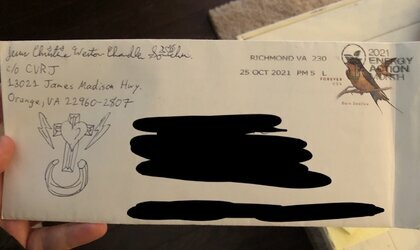 Jesus Christ Weston Chandler
c/o CVRJ
13021 James Madison Hwy.
Orange, VA 22960-2807
RICHMOND VA 230
25 OCT 2021 PM 5 L
2021
ENERGY
ACTION
MONTH
FOREVER
USA
Barn Swallow